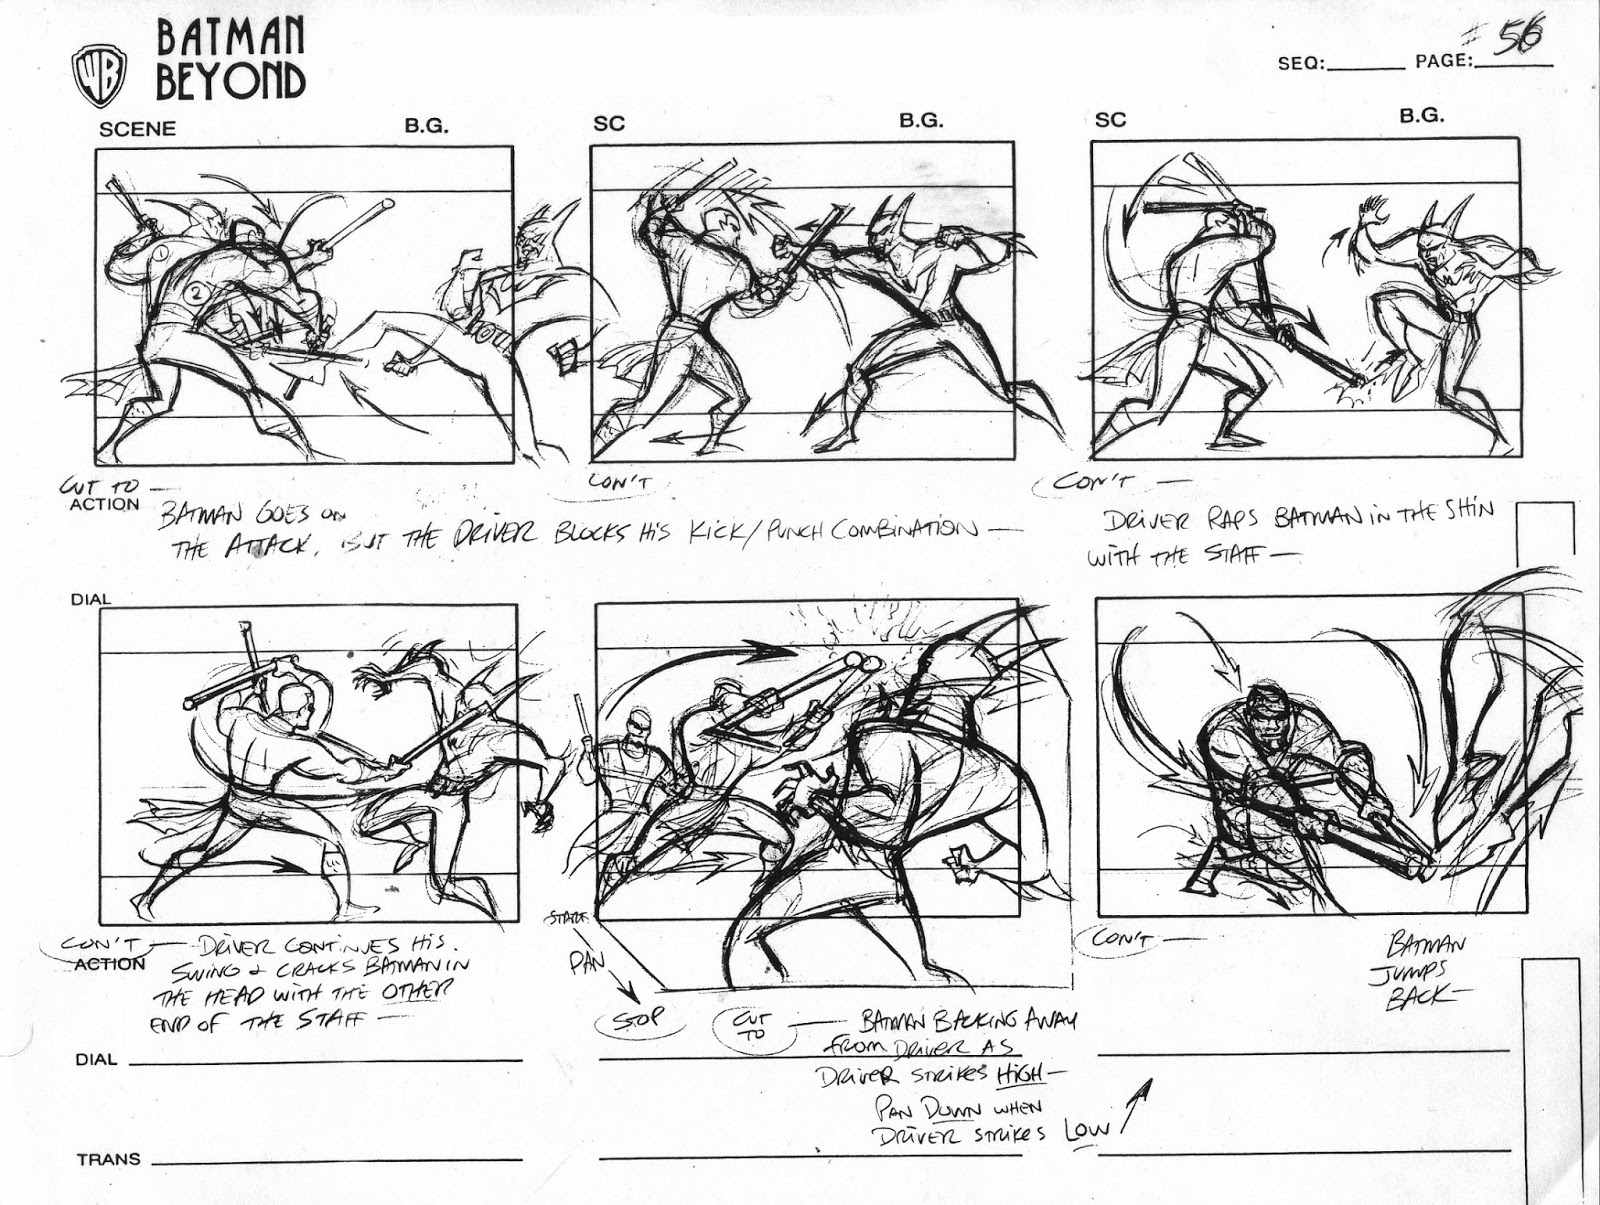 WB
BATMAN
BEYOND
SEQ:
PAGE:
# 56
SCENE
B.G.
SC
B.G.
SC
B.G.
1
2
CUT TO —
ACTION
BATMAN GOES ON
THE ATTACK, BUT THE DRIVER BLOCKS HIS KICK/PUNCH COMBINATION —
CON'T
CON'T —
DRIVER RAPS BATMAN IN THE SHIN
WITH THE STAFF —
DIAL
CON'T —
ACTION
DRIVER CONTINUES HIS
SWING & CRACKS BATMAN IN
THE HEAD WITH THE OTHER
END OF THE STAFF —
START
PAN
STOP
CUT
TO
— BATMAN BACKING AWAY
FROM DRIVER AS
DRIVER STRIKES HIGH —
PAN DOWN WHEN
DRIVER STRIKES LOW
CON'T —
BATMAN
JUMPS
BACK —
DIAL
TRANS